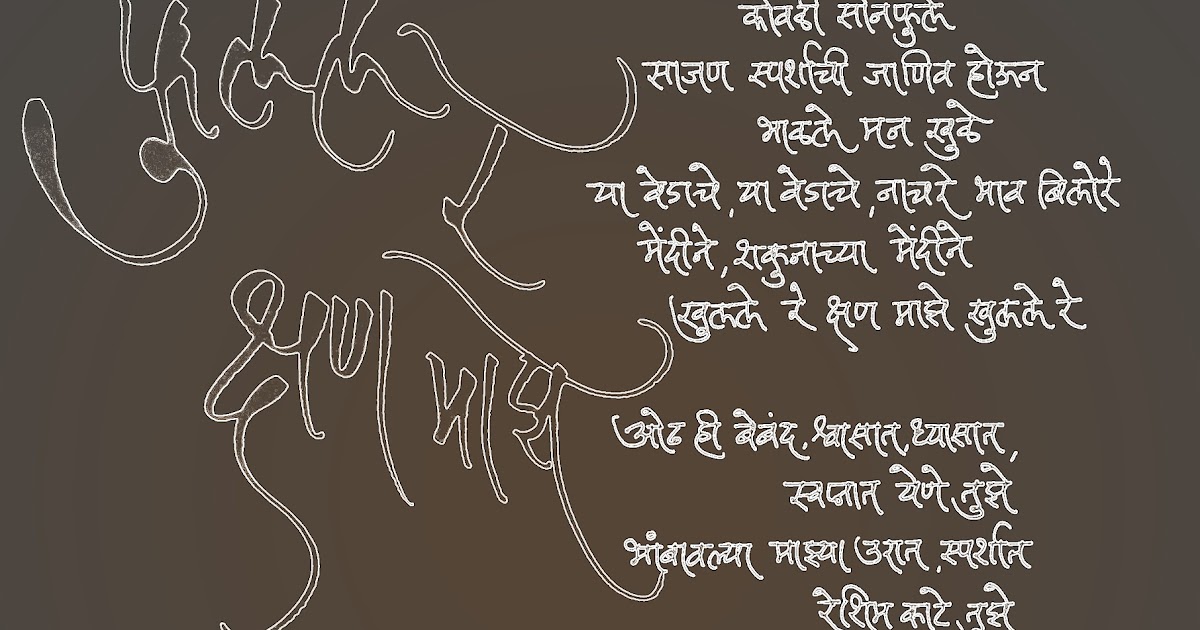 फुलले रे
क्षण माझे
कोवळी सोनफुले
साजण स्पर्शाची जाणिव होऊन
भाळले मन खुळे
या वेडाचे, या वेडाचे, नाचरे भाव बिलोरे
मेंदीने, शकुनाच्या मेंदीने
खुलले रे क्षण माझे खुलले रे
ओढ ही बेबंद, श्वासात, ध्यासात,
स्वप्नात येणे तुझे
भांबावल्या माझ्या उरात, स्पर्शात
रेशिम काटे तुझे